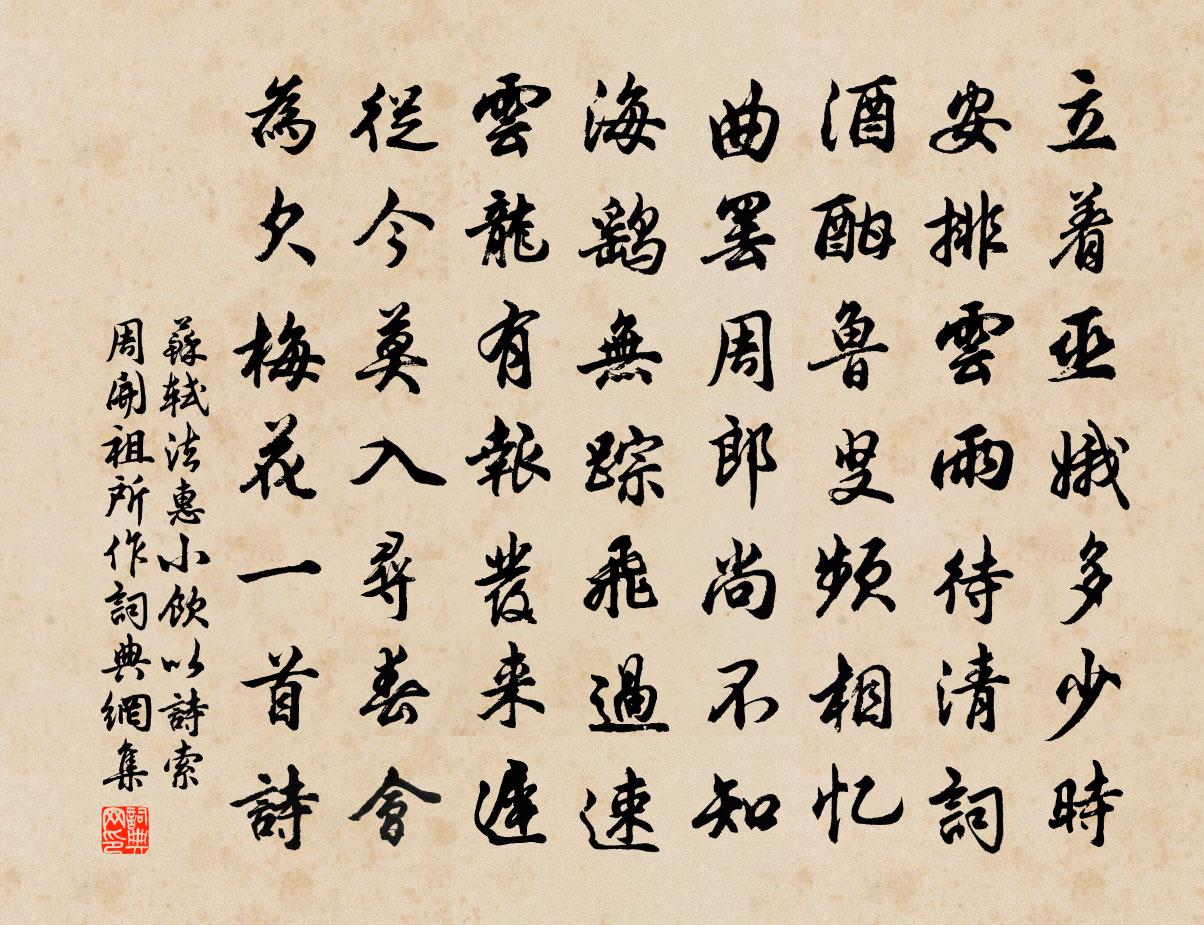 立着巫娥多少時
安排雲雨待清詞
酒酣魯叟頻相忆
曲罷周郎尚不知
海鷂無踪飛過速
雲龍有報發来遲
從今莫入尋春會
為欠梅花一首詩
蘇軾法惠小飲以詩索
周開祖所作詞典網集
詞典网印